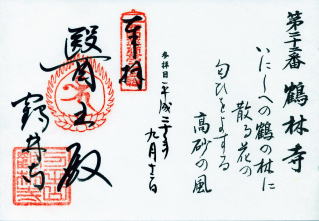 第二十二番 鶴林寺
いにしへの鶴の林に
散る花の
匂ひをよする
高砂の風
参拝日 平成二十三年
九月十一日
奉拝
醫王殿
鶴林寺